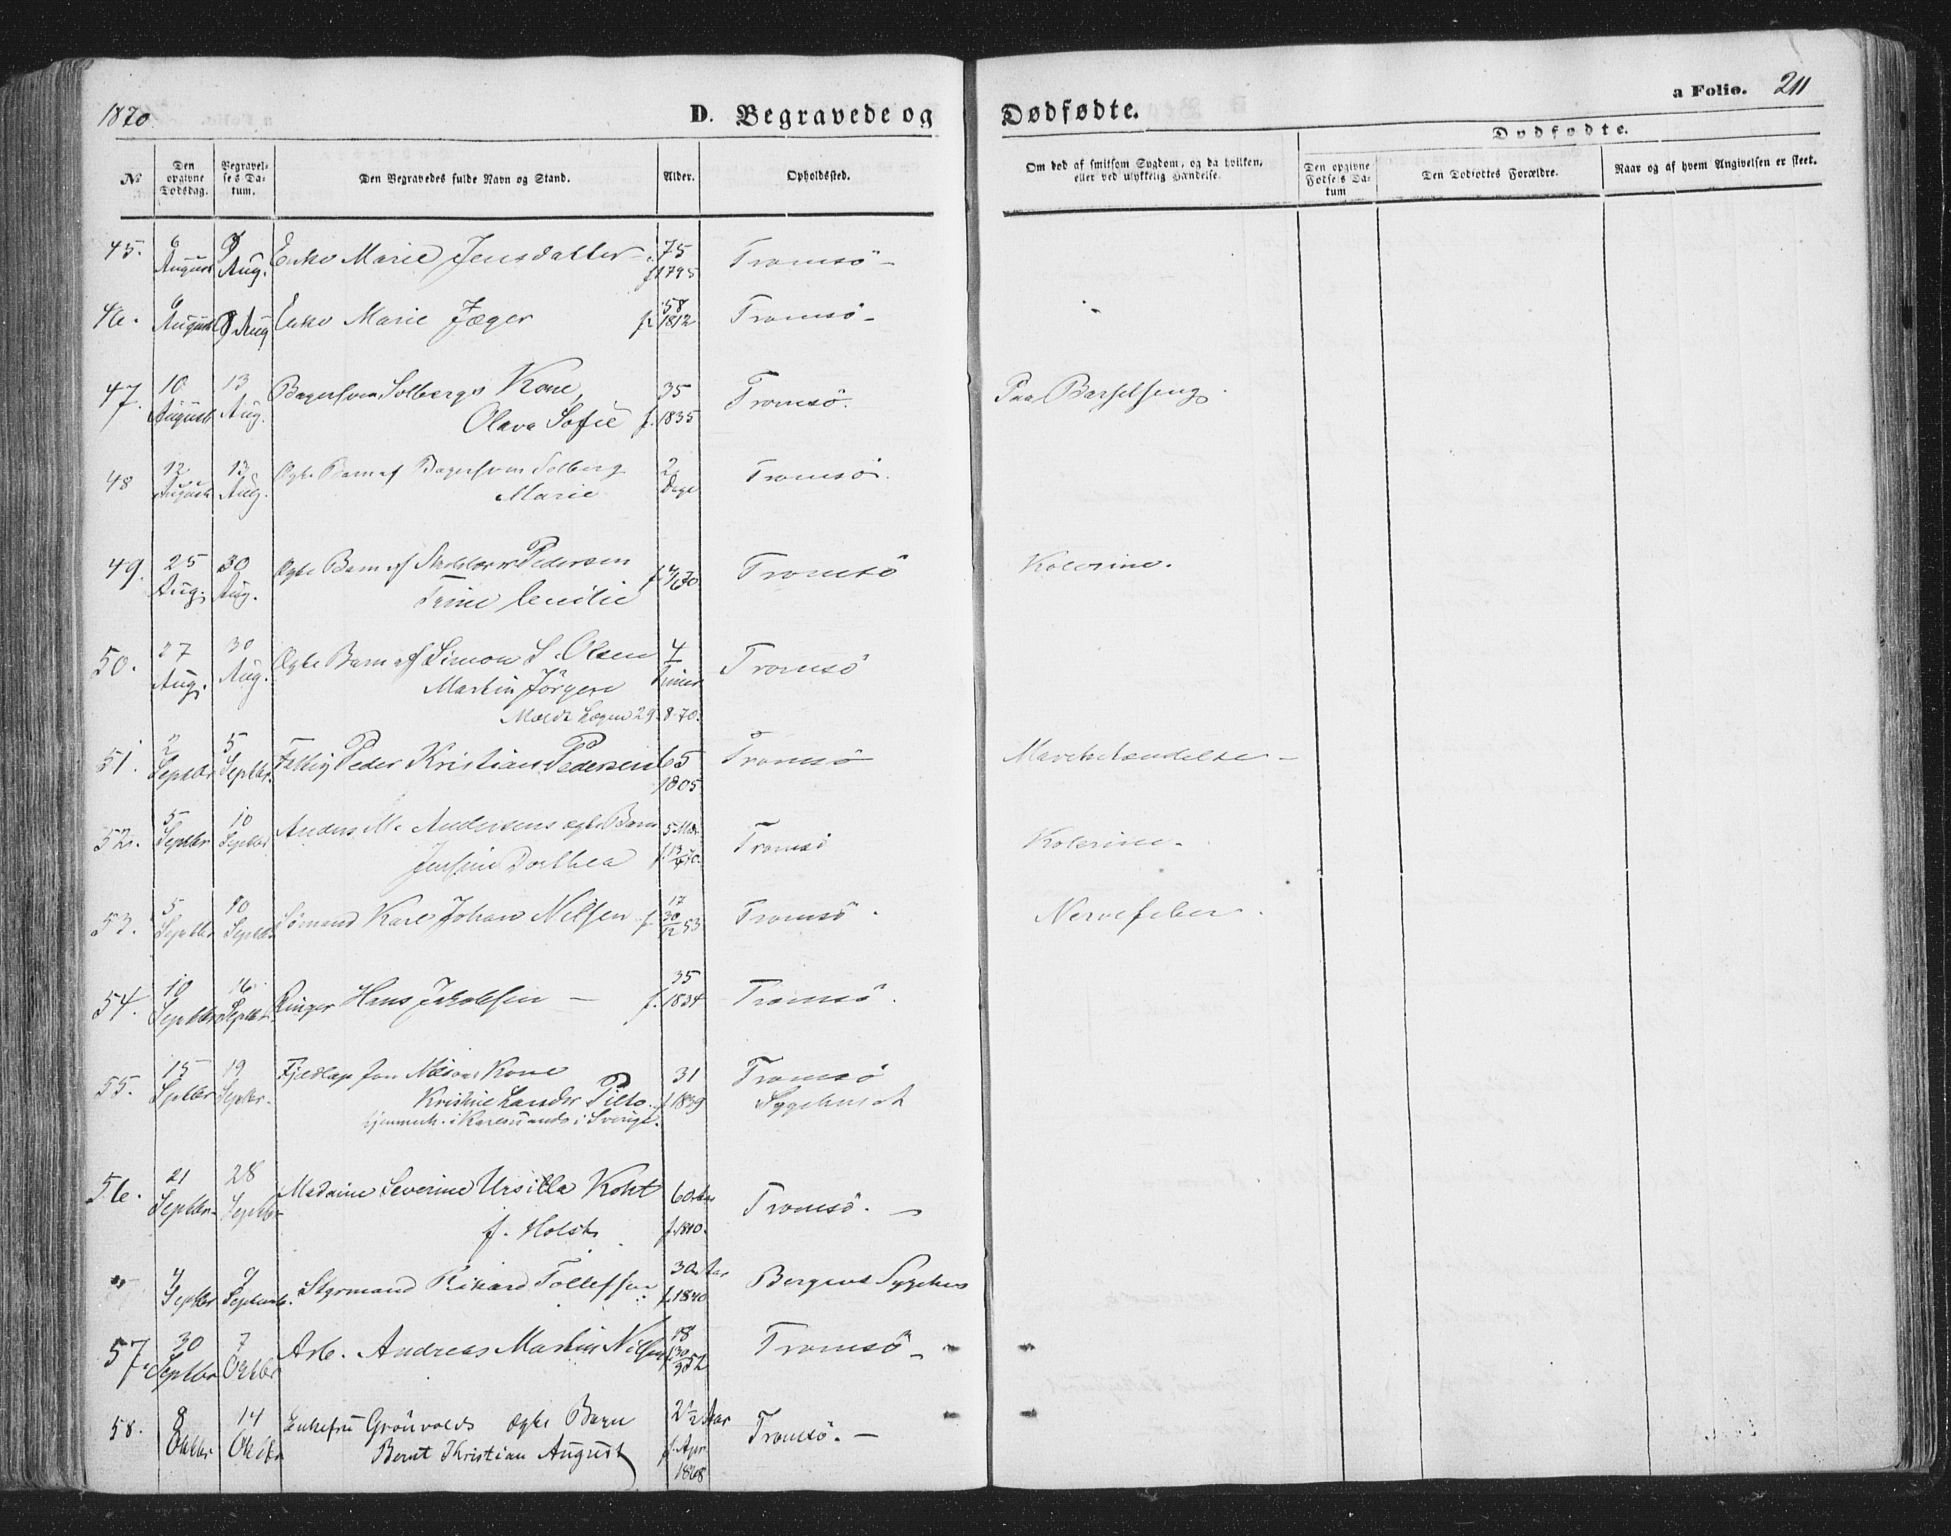 1870
D. Begravede og Dødfødte.
a Folio. 211
Dødfødte.
No
Den opgivne Dødsdag.
Begravelses Datum.
Den Begravedes fulde Navn og Stand.
Alder.
Opholdssted.
Om død af smitsom Sygdom, og da hvilken, eller ved ulykkelig Hændelse.
Den opgivne Fødsels Datum
Den Dødfødtes Forældre.
Naar og af hvem Angivelsen er skeet.
45. 6 August 9 Aug. Enke Marie Jensdatter 75 f 1795 Tromsö
46. 6 August 9 Aug Enke Marie Jæger 58 f. 1812 Tromsö
47. 10 August 13 Aug. Bagersven Solbergs Kone, 35 Tromsö. Paa Barselseng.
Olava Sofie f. 1835
48 12 August 13 Aug. Ægte Barn af Bagersven Solberg 2 Dage Tromsö.
Marie
49. 25 Aug. 30 Aug. Ægte Barn af Pedersen Tromsö Kolerine.
Trine
50. 27 Aug. 30 Aug. Ægte Barn af Simon S. Olsen 4 Timer Tromsö
Martin Jörgen
29 8-70.
51. 2 Septbr 5 Septbr. Fattig Peder Kristian Pedersen 65 1805 Tromsö
52. 5 Septbr 10 Septbr Anders M. Andersens ægte Barn 5 Mdr Tromsö Kolerine.
Jensine Dorthea
53. 5 Septbr 10 Septbr Sömand Karl Johan Nilsen f. 17 30/12 53 Tromsö. Nervefeber.
54. 10 Septbr 16 Septbr. Ringer Hans Jakobsen 35 f. 1834 Tromsö.
55. 15 Septbr 19 Septbr. Fjeldlap Jon Kone 31 Tromsö
Kristine Larsdr f 1839 Sygehuset
i Karesuando i Sverige.
56. 21 Septbr. 28 Septbr Madame Severine Ursilla Koht 60 Aar Tromsö.
f. Holst f. 1810.
4 Septbr 7 Septemb. Styrmand Rikard Tollefsen 30 Aar f. 1840 Bergens Sygehus
57. 30 Septbr 7 Oktbr Arb. Andreas Martin Nilsen 18 Tromsö
58. 8 Oktbr 14 Oktbr Enkefru Grönvolds ægte Barn 2½ Aar Tromsö.
Bernt Kristian August f. Apr. 1868